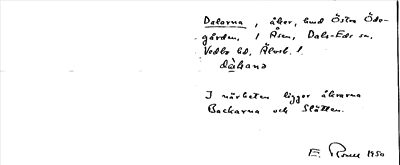 Dalarna, åker, hmd Östra Öde-
gården, i Åsen, Dals-Eds sn.
Vedbo hd, Älvsb. l.
dàḷana
I närheten ligger åkrarna
Backarna och Slätten.
E. 1950